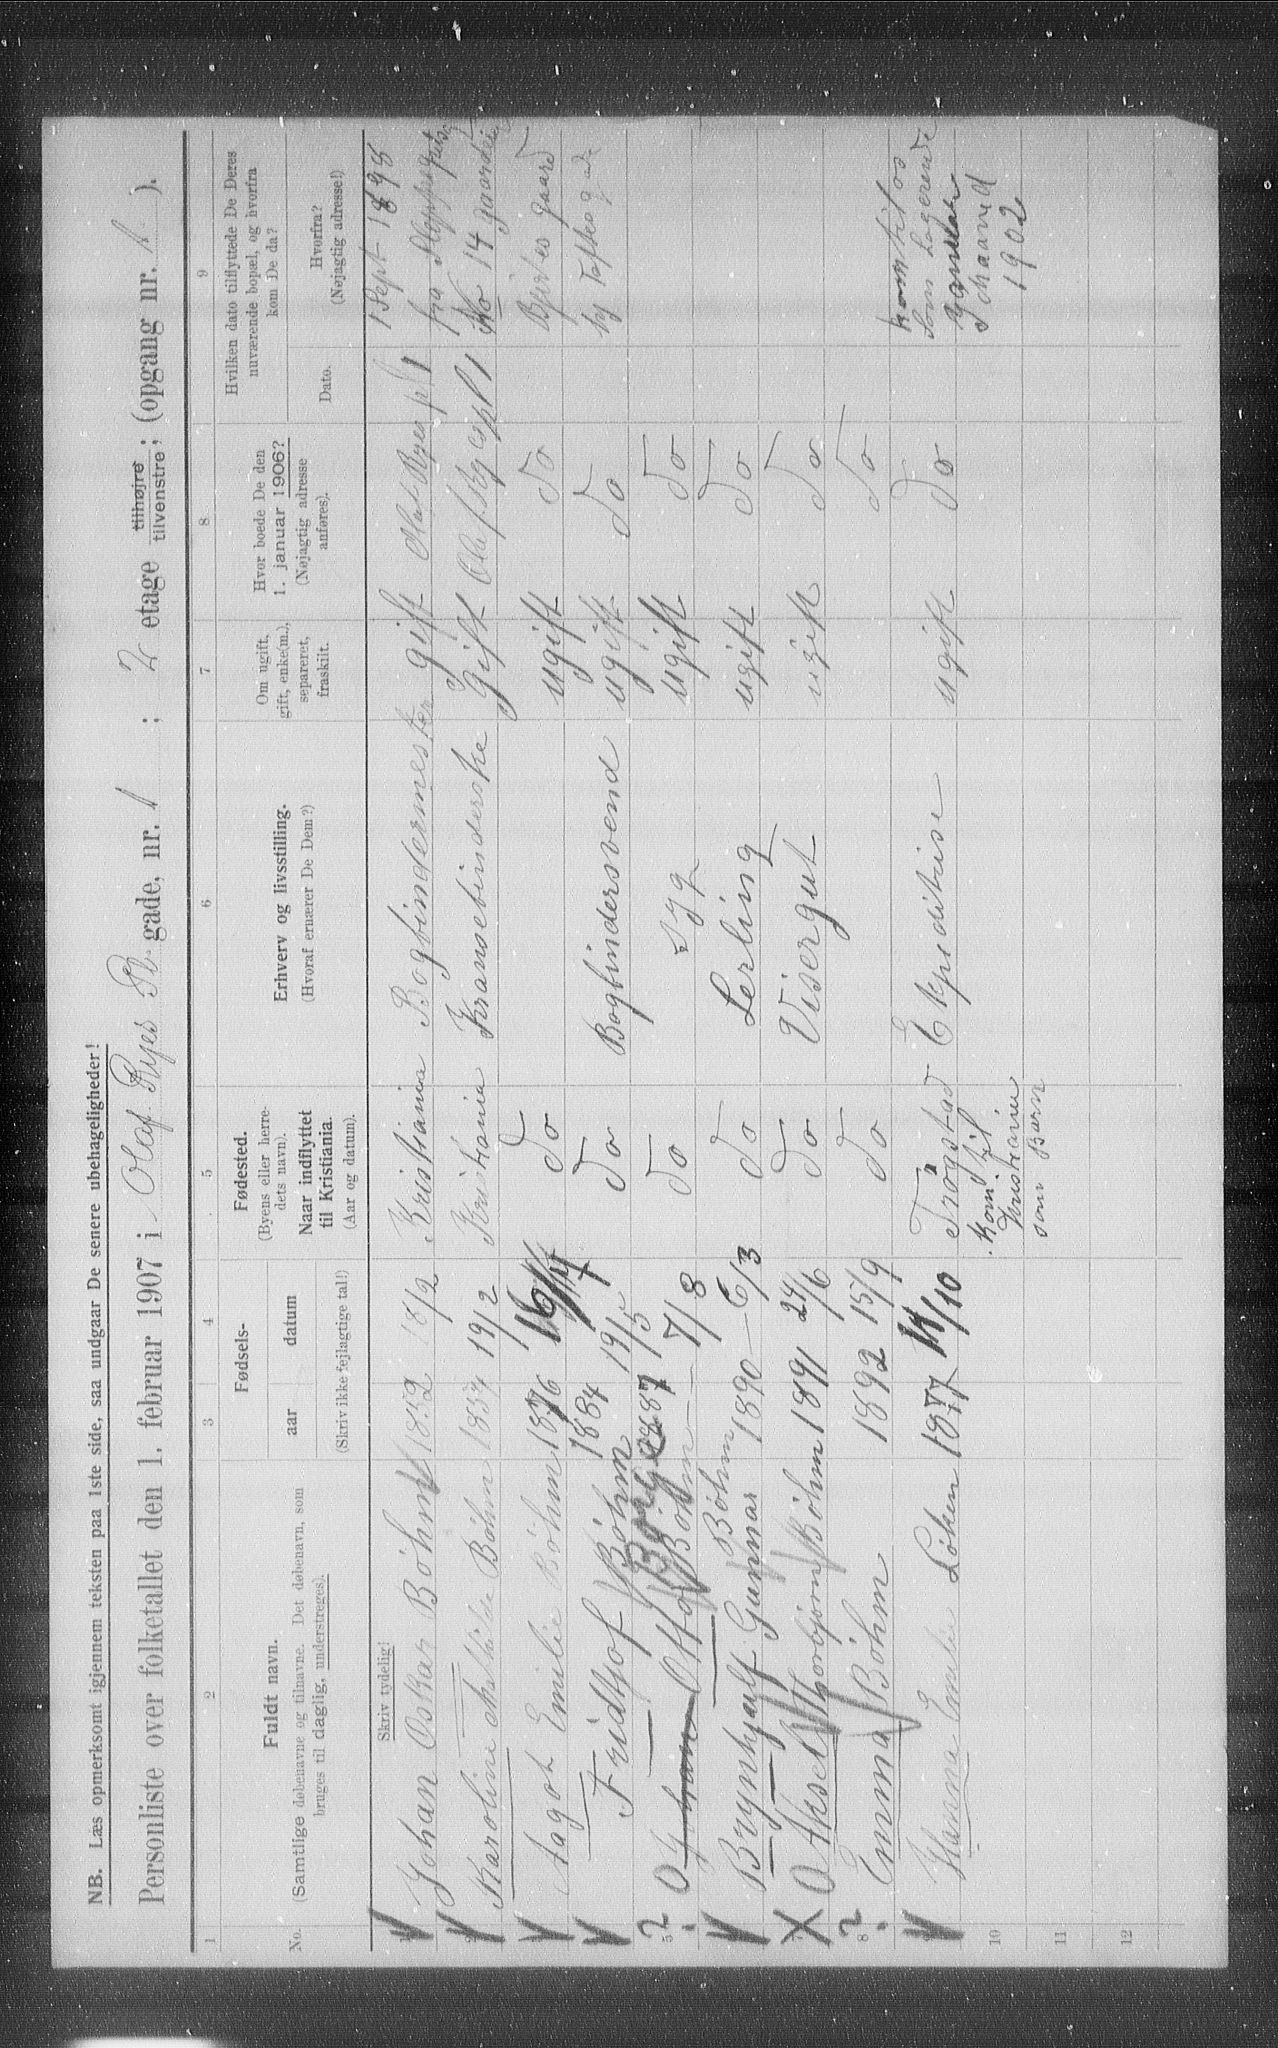 NB. Læs opmerksomt igjennem teksten paa 1ste side, saa undgaar De senere ubehageligheder!
Personliste over folketallet den 1. februar 1907 i Olaf Ryes Pl. gade, nr. 1 ; 2 etage tilhøjre tilvenstre; (opgang nr. 1 ).
1 2 3 4 5 6 7 8 9
No.
Fuldt navn.
(Samtlige døbenavne og tilnavne. Det døbenavn, som
bruges til daglig, understreges).
Fødsels-
aar datum
(Skriv ikke fejlagtige tal!)
Fødested.
(Byens eller herre-
dets navn).
Naar indflyttet
til Kristiania.
(Aar og datum).
Erhverv og livsstilling.
(Hvoraf ernærer De Dem?)
Om ugift,
gift, enke(m.),
separeret,
fraskilt.
Hvor boede De den
1. januar 1906?
(Nøjagtig adresse
anføres).
Hvilken dato tilflyttede De Deres
nuværende bopæl, og hvorfra
kom De da?
Dato.
Hvorfra?
(Nøjagtig adresse!)
Skriv tydelig!
1 Johan Oskar Bøhm 1852 18/2 Kristiania Bogbindermester gift Olaf Ryes pl 1 1 Sept 1898
2 Karoline Mathilde Bøhm 1854 19/2 Kristiania Kransebinderske gift Olaf Ryes pl 1 fra
3 Aagot Emilie Bøhm 1876 16/4 do ugift do No 14
4 Fridtjof Bøhm 1884 19/5 do Bogbindersvend ugift do gaard
? 5 Johan Otto Børge Bøhm 1887 7/8 do syg ugift do
6 Brynhjulf Gunnar Bøhm 1890 6/3 do Lerling ugift do
X 7 Aksel Thorbjørn Bøhm 1891 24/6 do Visergut ugift do
? 8 Emma Bøhm 1892 15/9 do do
9 Hanna Emilie Løken 1877 11/10 Trøgstad Ekspeditrise ugift do kom til os
som Logerende
1902
kom til
Kristiania
som Barn
10
11
12